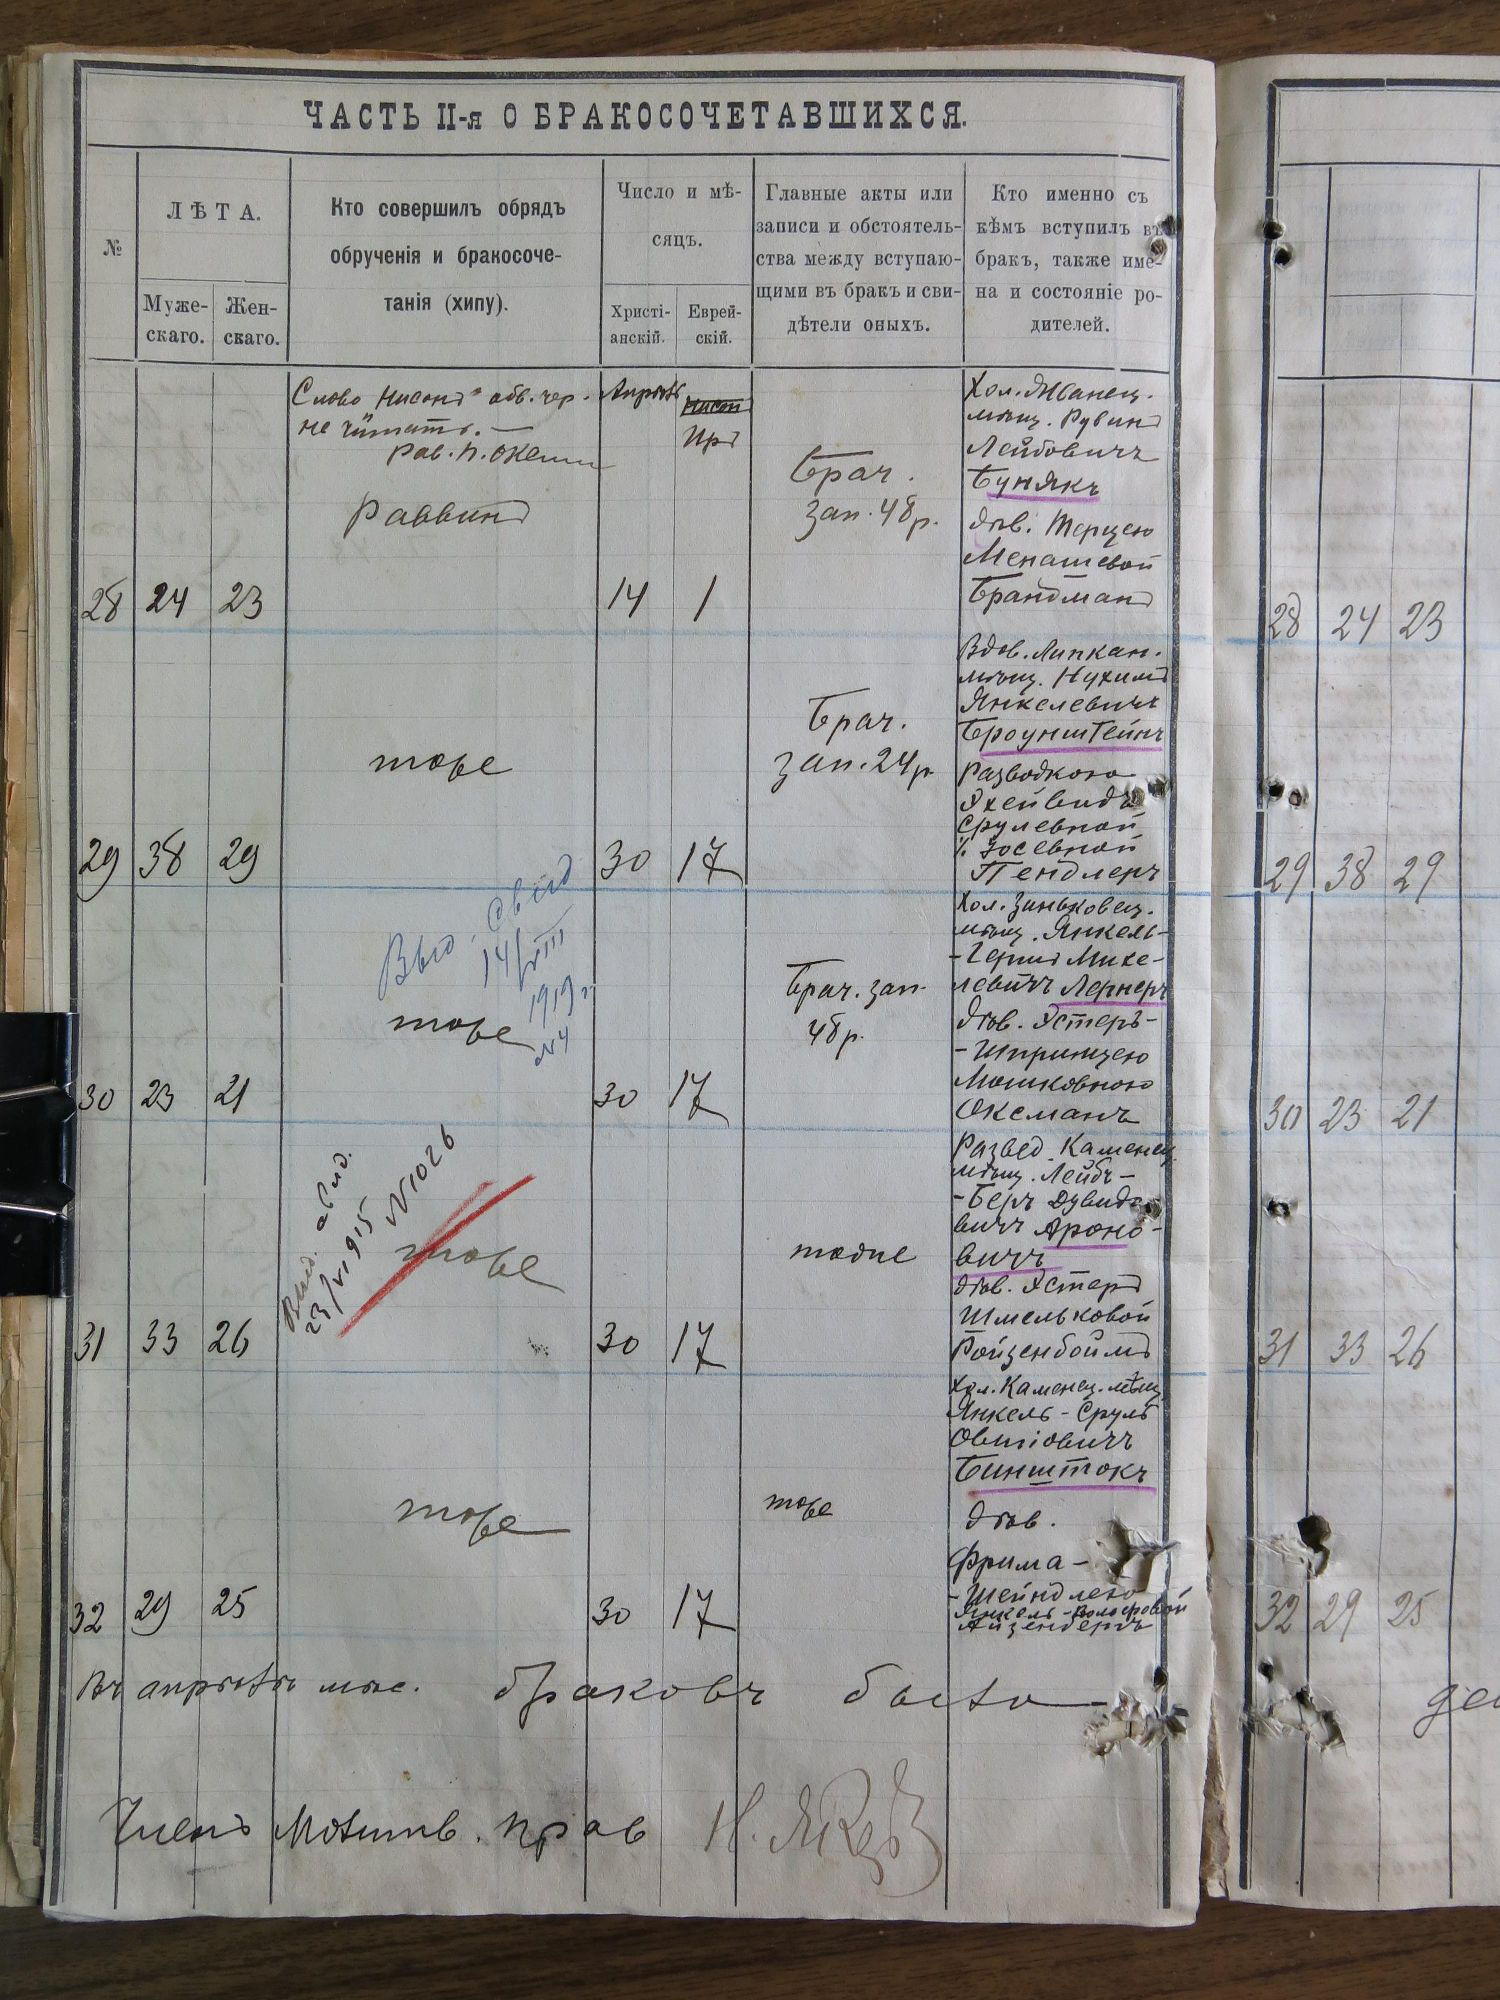 ЧАСТЬ II-я О БРАКОСОЧЕТАВШИХСЯ.
№
ЛѢТА.
Муже-
скаго.
Жен-
скаго.
Кто совершилъ обрядъ
обрученія и бракосоче-
танія (хипу).
Число и мѣ-
сяцъ.
Христі-
анскій.
Еврей-
скій.
Главные акты или
записи и обстоятель-
ства между вступаю-
щими въ бракъ и сви-
дѣтели оныхъ.
Кто именно съ
кѣмъ вступилъ въ
бракъ, также име-
на и состояніе ро-
дителей.
Слово Нисонъ обв. чер.
не читать.
Рав. П. Оксман
Апрѣль
Нисон
Иръ
Раввинъ
Брач.
зап. 48 р.
Хол. Жванец.
мѣщ. Рувинъ
Лейбовичъ
Бунякъ
дѣв. Терцею
Менашевой
Брандманъ
28 24 23 14 1
28 24 23
тоже
Брач.
зап. 24 р.
Вдов. Липкан.
мѣщ. Нухимъ
Янкелевичъ
Броунштейнъ
Разводкою
Хейвидъ
Срулевной
Iосевной
Пендлеръ
29 38 29 30 17
29 38 29
Выд. свид
14/VIII
1919 г
№4
тоже
Брач. зап.
48 р.
Хол. Зиньковец.
мѣщ. Янкель-
-Гершъ Михе-
левичъ Лернеръ
дѣв. Эстеръ-
-Шпринцею
Мошковною
Оксманъ
30 23 21 30 17
30 23 21
Выд. свид.
23/VI 915 №1026
тоже
тоже
Развед. Каменец.
мѣщ. Лейбъ-
-Беръ Дувидо
вичъ Ароно-
вичъ
дѣв. Эстеръ
Шмельковой
Ройзенбоймъ
31 33 26 30 17
31 33 26
тоже
тоже
Хол. Каменец. мѣщ.
Янкель-Сруль
Овшіовичъ
Бинштокъ
дѣв.
Фрима-
-Шейндлею
Янкель-Вольфовой
Айзенбергъ
32 29 25 30 17
32 29 25
Въ апрѣлѣ мѣс. браковъ было
Членъ Молитв. прав